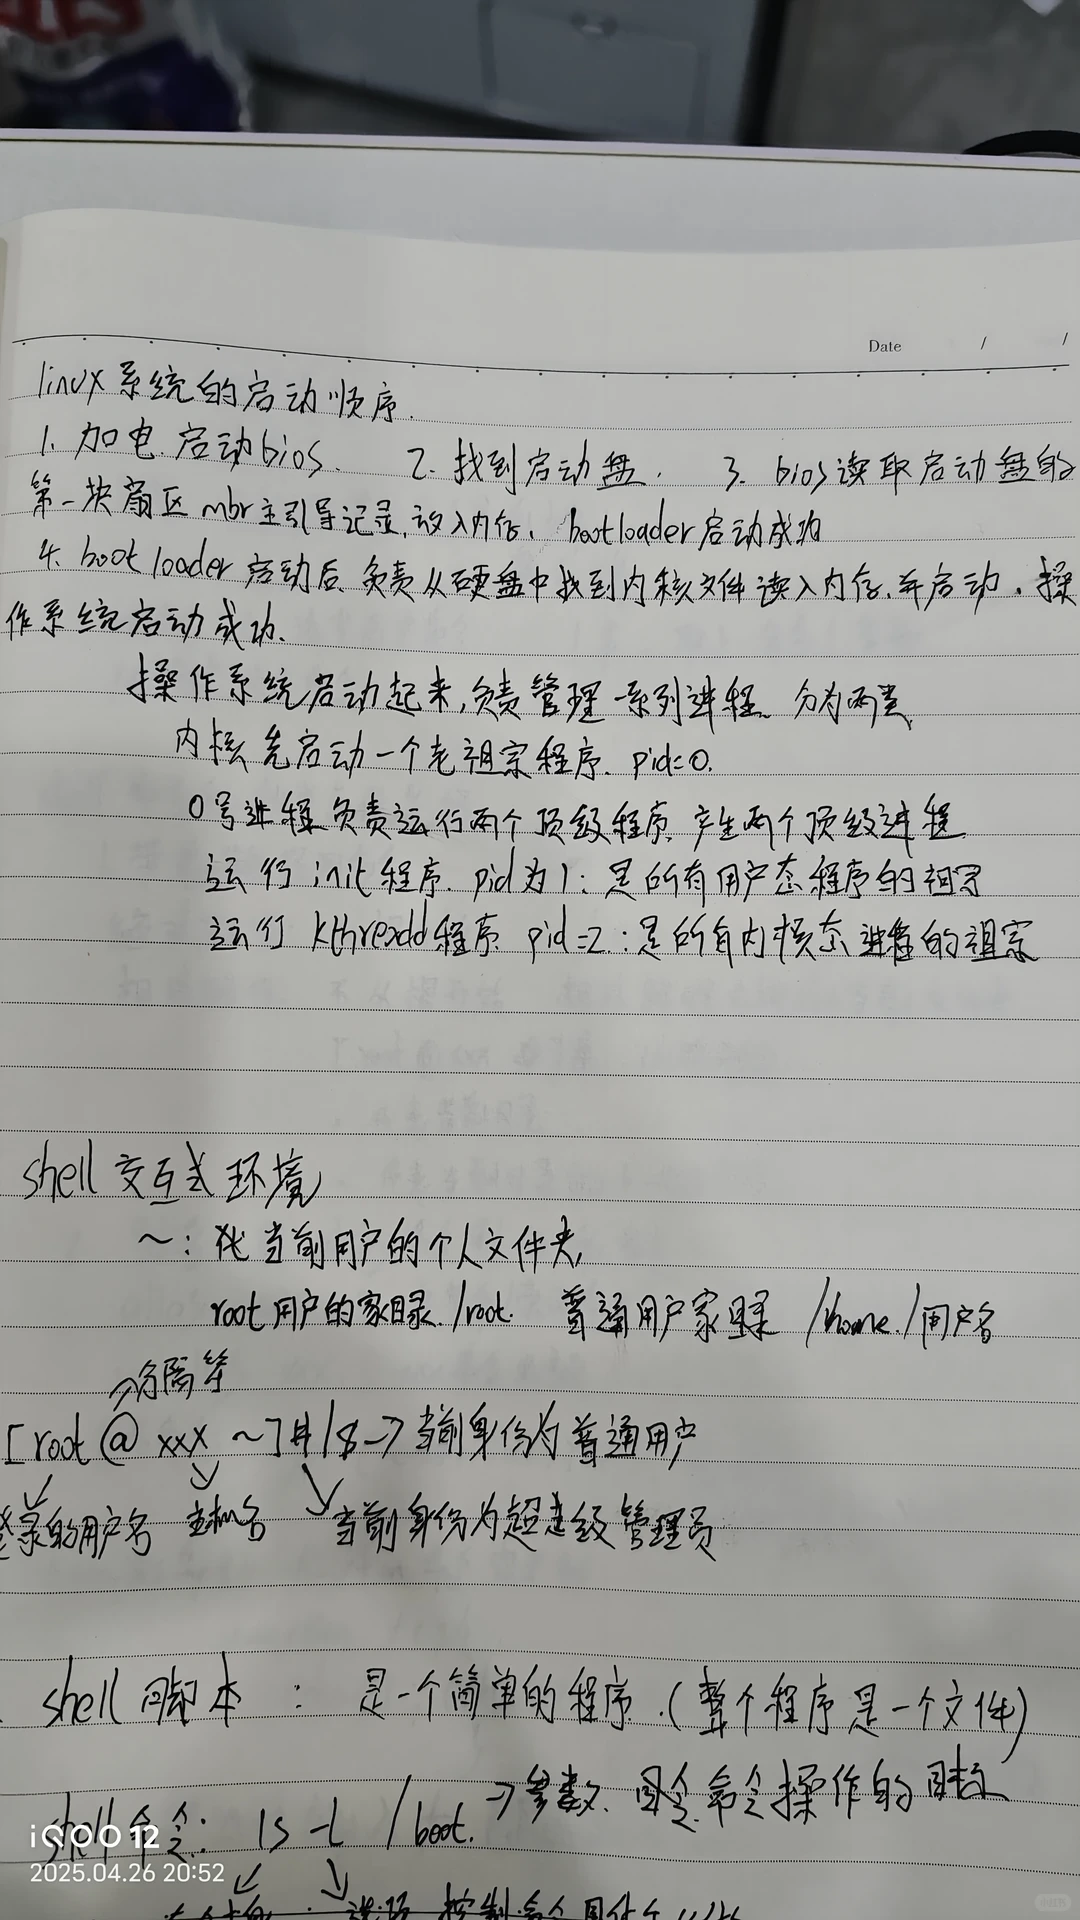 Date / /
linux系统的启动顺序.
1. 加电.启动bios. 2. 找到启动盘. 3. bios读取启动盘的
第一块扇区mbr主引导记录,放入内存. bootloader启动成功
4. bootloader启动后.负责从硬盘中找到内核文件读入内存.并启动.操
作系统启动成功.
操作系统启动起来,负责管理一系列进程.分为两类
内核先启动一个老祖宗程序. pid=0.
0号进程负责运行两个顶级程序.产生两个顶级进程
运行init程序. pid为1:是所有用户态程序的祖宗
运行kthreadd程序 pid=2:是所有内核态进程的祖宗
shell交互式环境
~: 代当前用户的个人文件夹.
root用户的家目录./root. 普通用户家目录 /home./用户名
→分隔符
[root@xxx ~]#/$→当前身份为普通用户
登录的用户名 主机名 当前身份为超级管理员
shell脚本 : 是一个简单的程序.(整个程序是一个文件)
→参数. 命令操作的目标
shell命令: ls -l /boot.
iQOO 12
2025.04.26 20:52
选项 控制命令